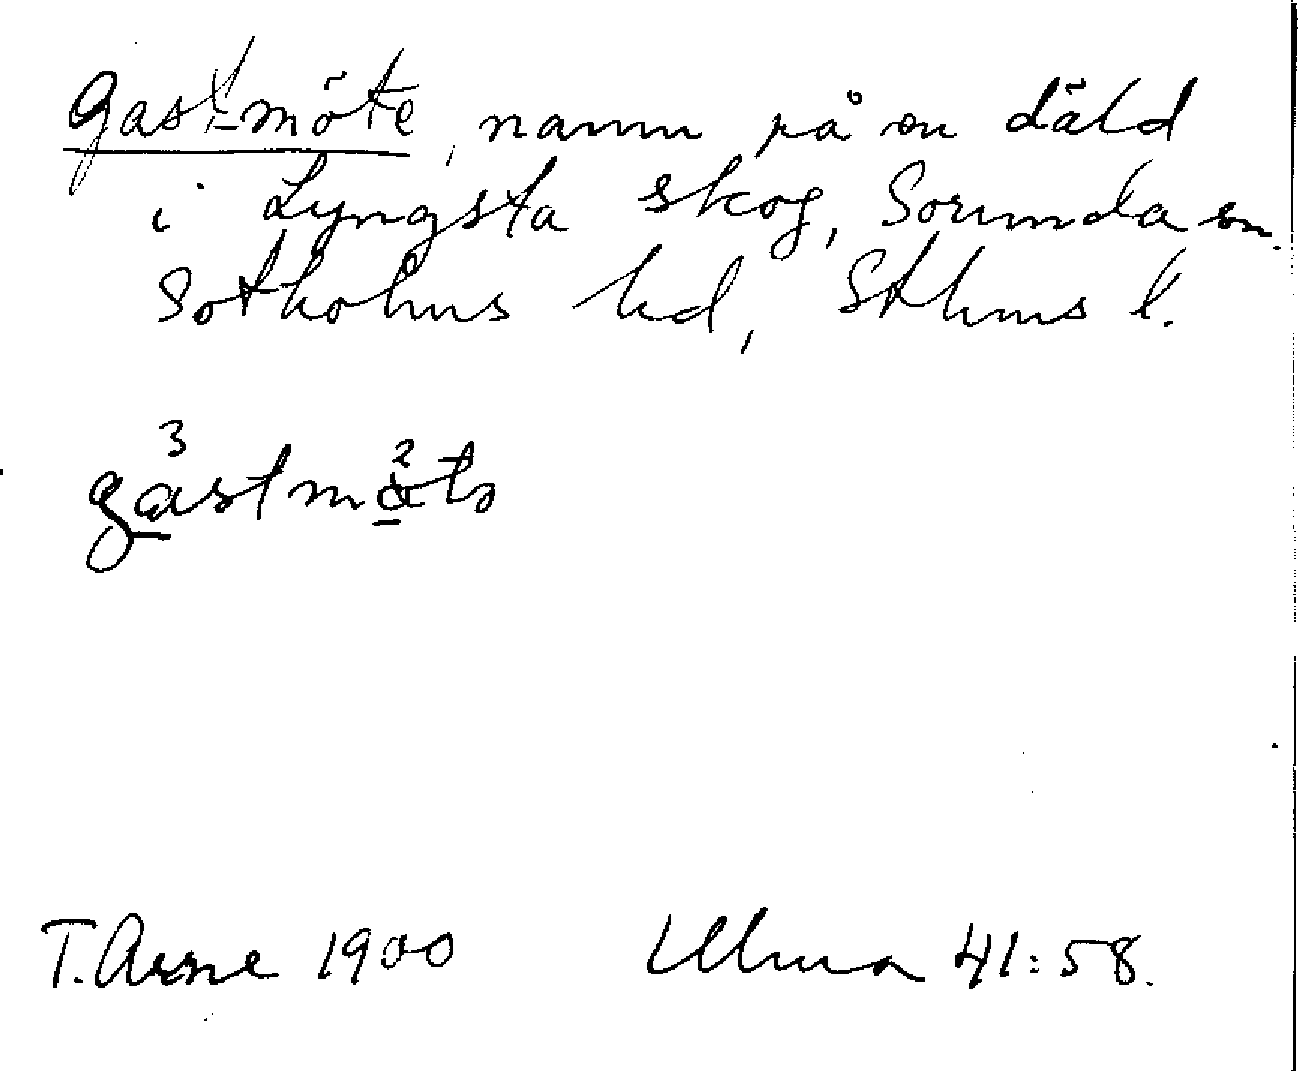 Gast-möte, namn på en däld
i Lyngsta skog, Sorunda sn.
Sotholms hd, Sthlms l.
T. Arne 1900 Ulma 41:58.